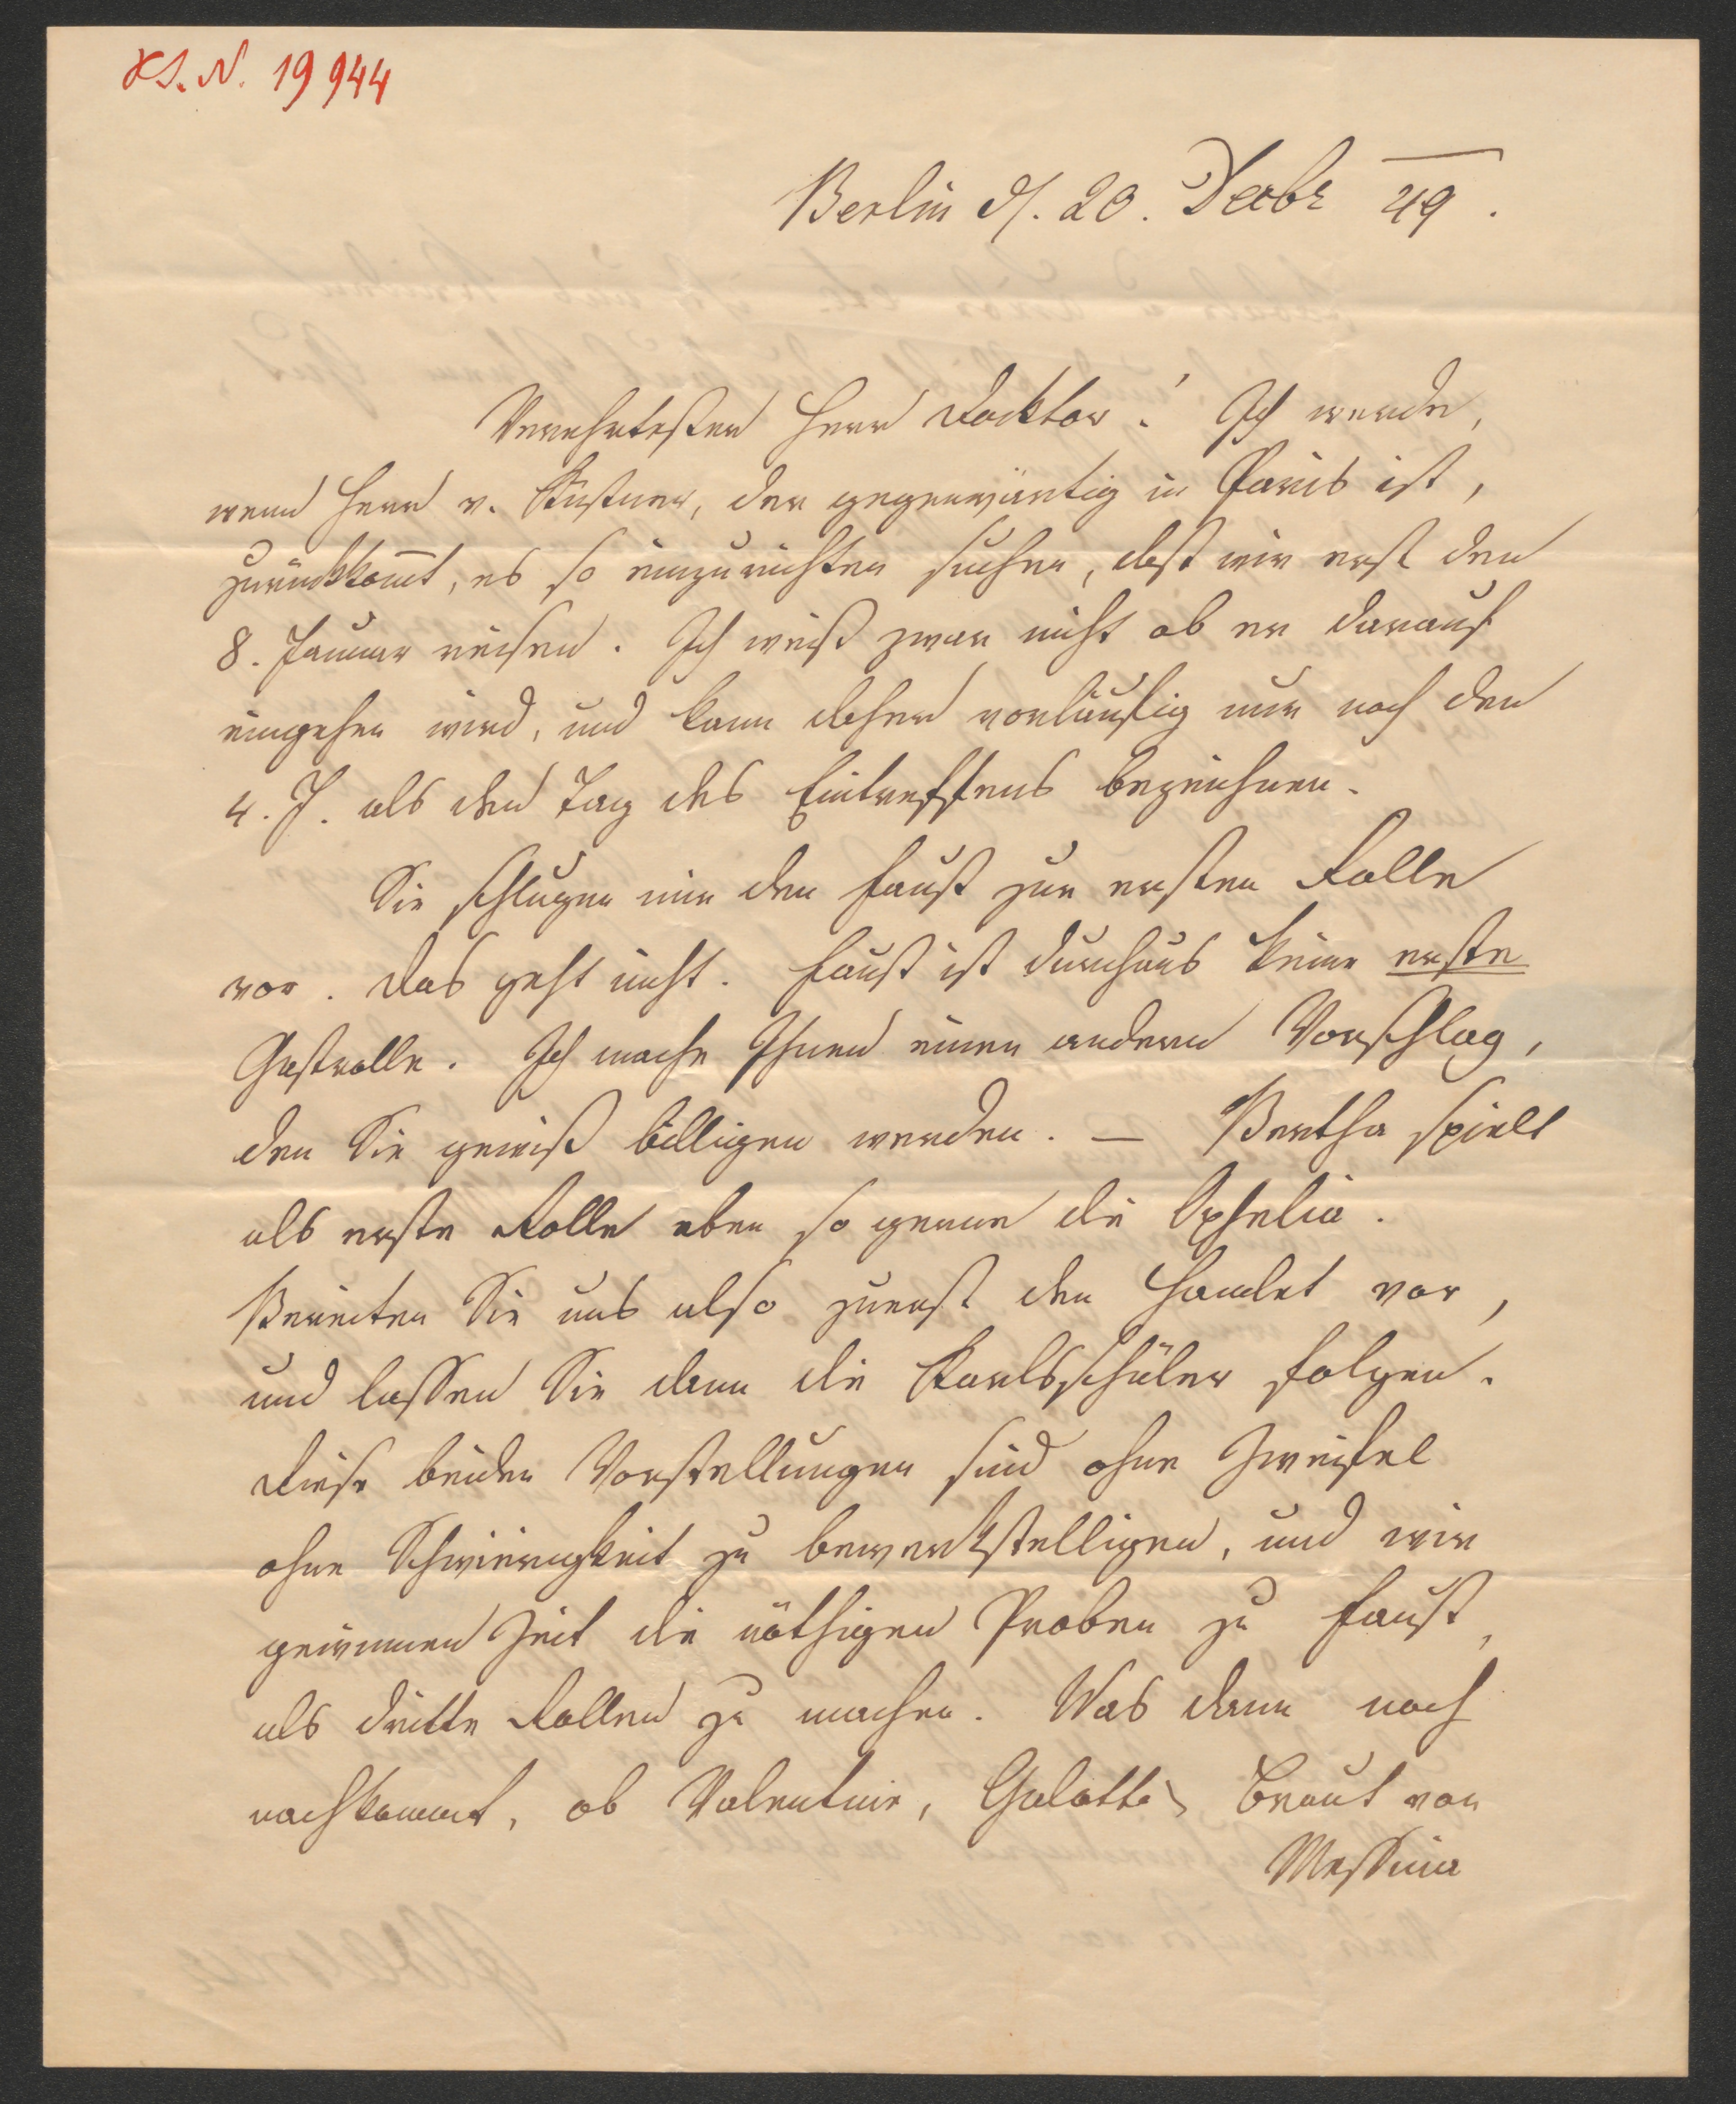 H.I.N. 19944
Berlin d. 20. Decbr 49.
Verehrtester Herr Docktor! Ich werde,
wenn Herr v. Küstner, der gegenwärtig in Paris ist,
zurückkom̄t, es so einzurichten suchen, daß wir erst den
8. Januar reisen. Ich weiß zwar nicht ob er darauf
eingehen wird, und kann daher vorläufig nur noch den
4. J. als den Tag des Eintreffens bezeichnen.
Sie schlugen mir den Faust zur ersten Rolle
vor. Das geht nicht. Faust ist durchaus keine erste
Gastrolle. Ich mache Ihnen einen andern Vorschlag,
den Sie gewiß billigen werden. — Bertha spielt
als erste Rolle eben so gerne die Ophelia.
Bereiten Sie uns also zuerst den Hamlet vor,
und lassen Sie dann die Karlsschüler folgen.
Diese beiden Vorstellungen sind ohne Zweifel
ohne Schwierigkeit zu bewerkstelligen, und wir
gewinnen Zeit die nöthigen Proben zu Faust,
als dritte Rollen zu machen. Was dann noch
nachkommt, ob Valentine, Galotti, Braut von
Messina